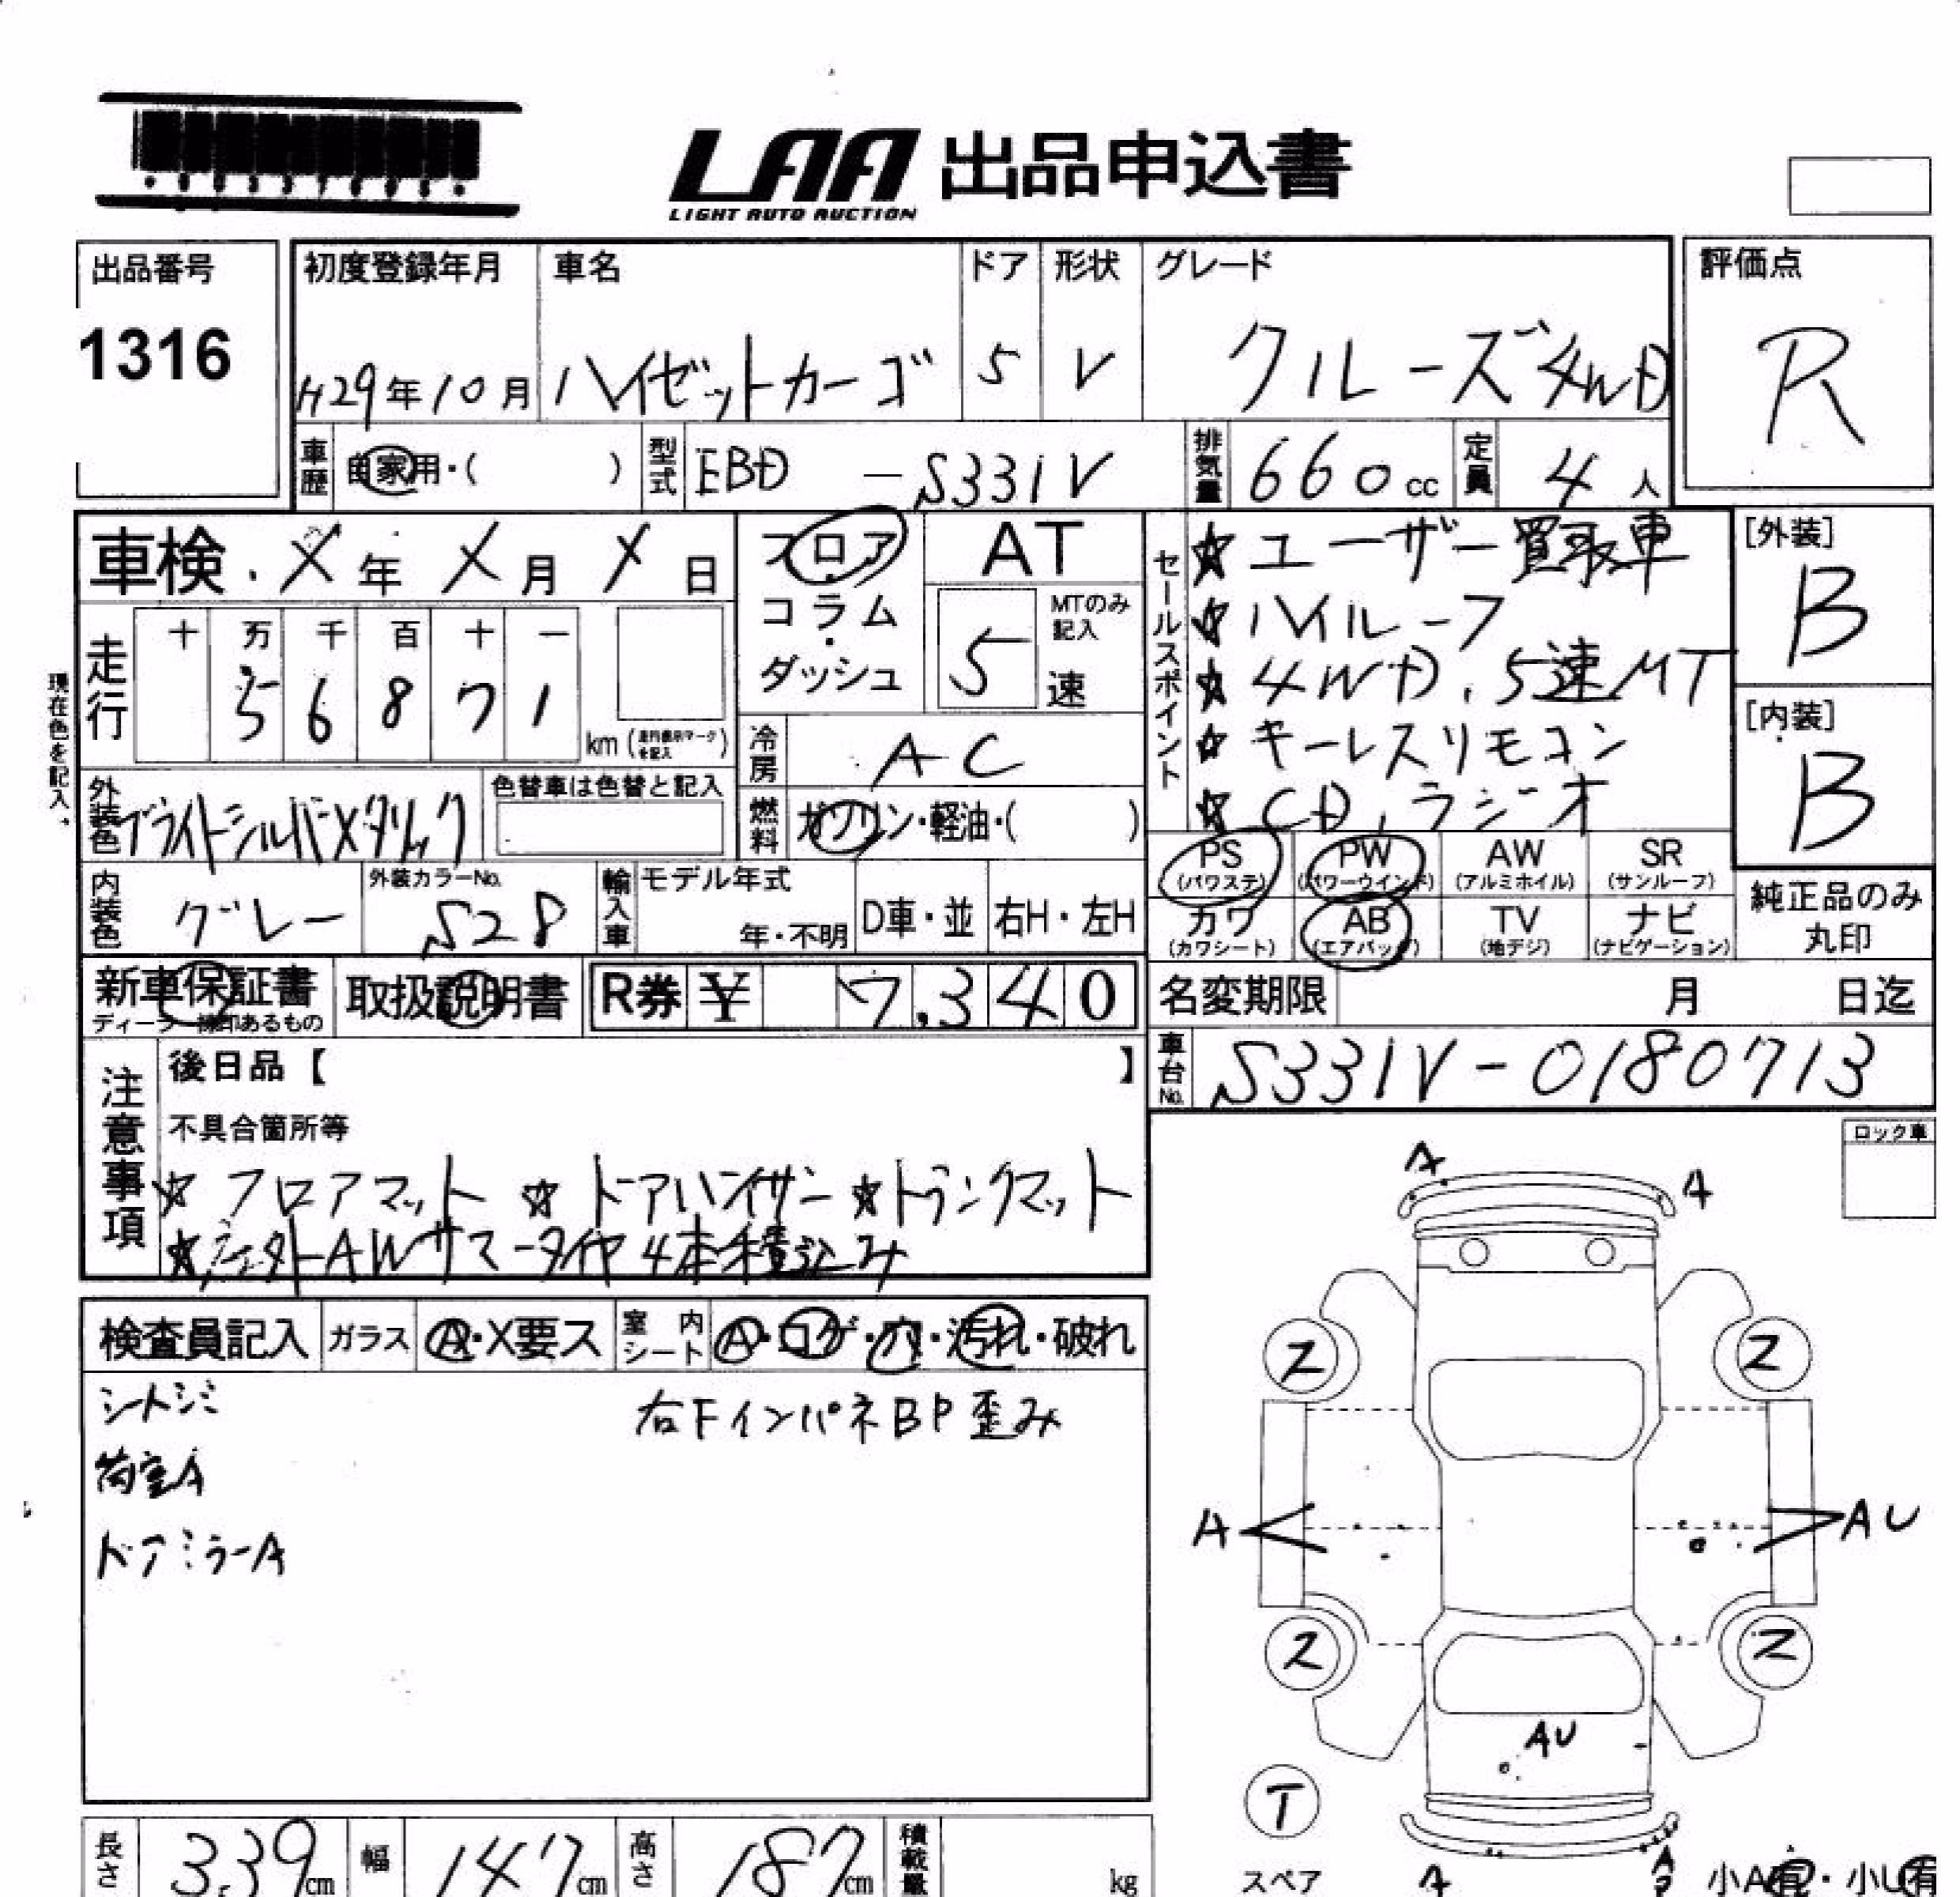 LAA 出品申込書
LIGHT AUTO AUCTION
出品番号
1316
初度登録年月
H29年10月
車名
ハイゼットカーゴ
ドア
5
形状
V
グレード
クルーズ4WD
評価点
R
車歴 自家用・( )
型式 EBD - S331V
排気量 660cc
定員 4人
車検 X年 X月 X日
フロア・コラム・ダッシュ
AT
MTのみ記入
5速
セールスポイント
☆ユーザー買取車
☆ハイルーフ
☆4WD、5速MT
☆キーレスリモコン
☆CD、ラジオ
[外装]
B
[内装]
B
現在色を記入。
走行
十 万 千 百 十 一
5 6 8 7 1
km (走行表示マークを記入)
冷房 AC
燃料 ガソリン・軽油・( )
外装色 ブライトシルバーメタリック
色替車は色替と記入
内装色 グレー
外装カラーNo.
S28
輸入車
モデル年式
年・不明
D車・並
右H・左H
PS (パワステ)
PW (パワーウインド)
AW (アルミホイル)
SR (サンルーフ)
カワ (カワシート)
AB (エアバッグ)
TV (地デジ)
ナビ (ナビゲーション)
純正品のみ
丸印
新車保証書
取扱説明書
R券 ¥ 7,340
名変期限 月 日迄
車台No. S331V-0180713
注意事項
後日品【 】
不具合箇所等
☆フロアマット ☆ドアバイザー ☆トランクマット
AWサマータイヤ4本積込み
ロック車
検査員記入
ガラス A・X要ス
室内シート A・コゲ・穴・汚れ・破れ
シートシミ
右FインパネBP歪み
荷室A
ドアミラーA
A
A
Z
Z
A
AU
Z
Z
AU
T
スペア
A
A
小A有・小U有
長さ 3.39cm
幅 147cm
高さ 187cm
積載量 kg